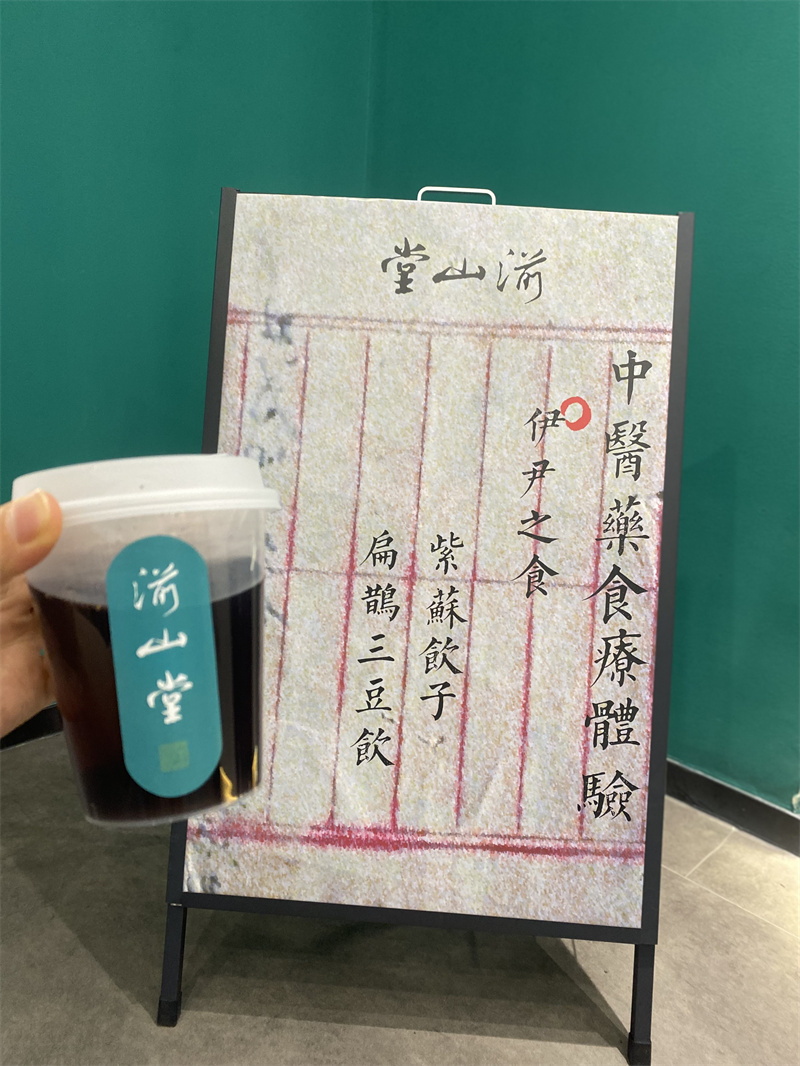 湔山堂
中醫藥食療體驗
伊尹之食
紫蘇飲子
扁鵲三豆飲
湔山堂